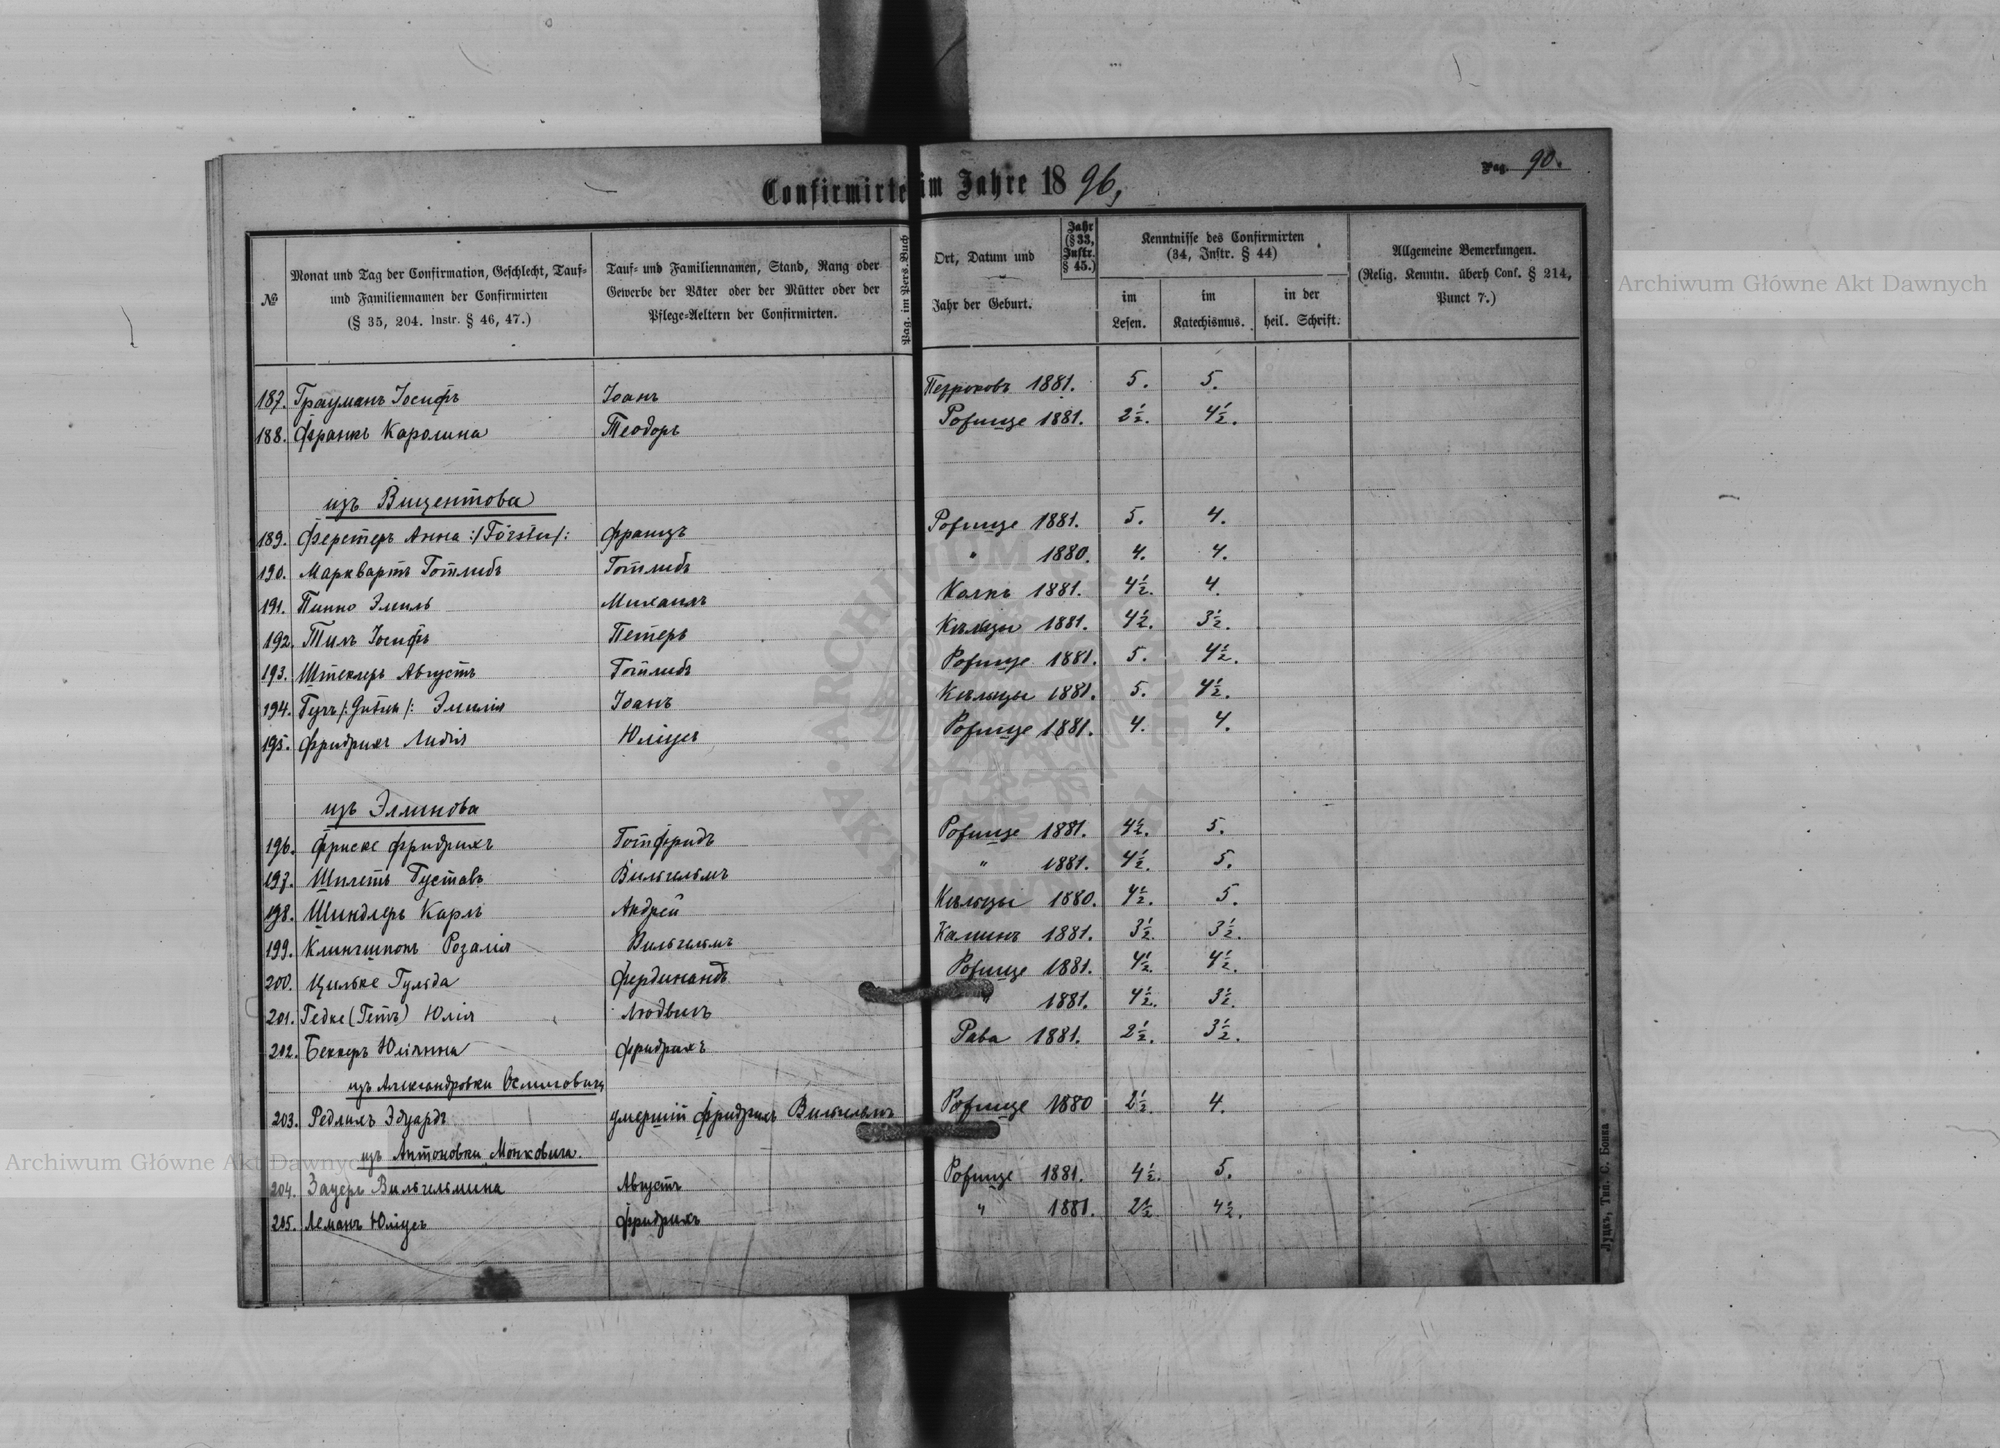 Confirmirte im Jahre 18 96,
Pag. 90.
№
Monat und Tag der Confirmation, Geschlecht, Tauf-
und Familiennamen der Confirmirten
(§ 35, 204. Instr. § 46, 47.)
Tauf- und Familiennamen, Stand, Rang oder
Gewerbe der Väter oder der Mütter oder der
Pflege-Aeltern der Confirmirten.
Pag. im Pers. Buch
Ort, Datum und
Jahr der Geburt.
Jahr
(§ 33,
Instr.
§ 45.)
Kenntnisse des Confirmirten
(34, Instr. § 44)
im
Lesen.
im
Katechismus.
in der
heil. Schrift.
Allgemeine Bemerkungen.
(Relig. Kenntn. überh Conf. § 214,
Punct 7.)
187. Грауманъ Іосифъ Іоанъ 1881. 5. 5.
188. Франкъ Каролина Теодоръ Рожище 1881. 2½. 4½.
изъ Вицентова
189. Ферстеръ Анна :/Förster/: Францъ Рожище 1881. 5. 4.
190. Марквартъ Готлибъ Готлибъ " 1880. 4. 4.
191. Пинно Эмиль Михаилъ 1881. 4½. 4.
192. Тилъ Іосифъ Петеръ Кѣльцы 1881. 4½. 3½.
193. Штеклеръ Августъ Готлибъ Рожище 1881. 5. 4½.
194. Эмилія Іоанъ Кѣльцы 1881. 5. 4½.
195. Фридрихъ Лидія Юліусъ Рожище 1881. 4. 4.
изъ Эллинова
196. Фриске Фридрихъ Готфридъ Рожище 1881. 4½. 5.
197. Густавъ Вильгельмъ " 1881. 4½. 5.
198. Шиндлеръ Карлъ Андрей Кѣльцы 1880. 4½. 5.
199. Розалія Вильгельмъ 1881. 3½. 3½.
200. Цильке Гульда Фердинандъ Рожище 1881. 4½. 4½.
201. Гедке (Гетъ) Юлія Людвигъ " 1881. 4½. 3½.
202. Беккеръ Юліянна Фридрихъ Рава 1881. 2½. 3½.
изъ Александровки
203. Редлихъ Эдуардъ умершій Фридрихъ Вильгельмъ Рожище 1880 2½. 4.
изъ Антоновки
204. Зауеръ Вильгельмина Августъ Рожище 1881. 4½. 5.
205. Леманъ Юліусъ Фридрихъ " 1881. 2½. 4½.
Луцкъ, Тип. С. Бонка
Archiwum Główne Akt Dawnych
Archiwum Główne Akt Dawnych